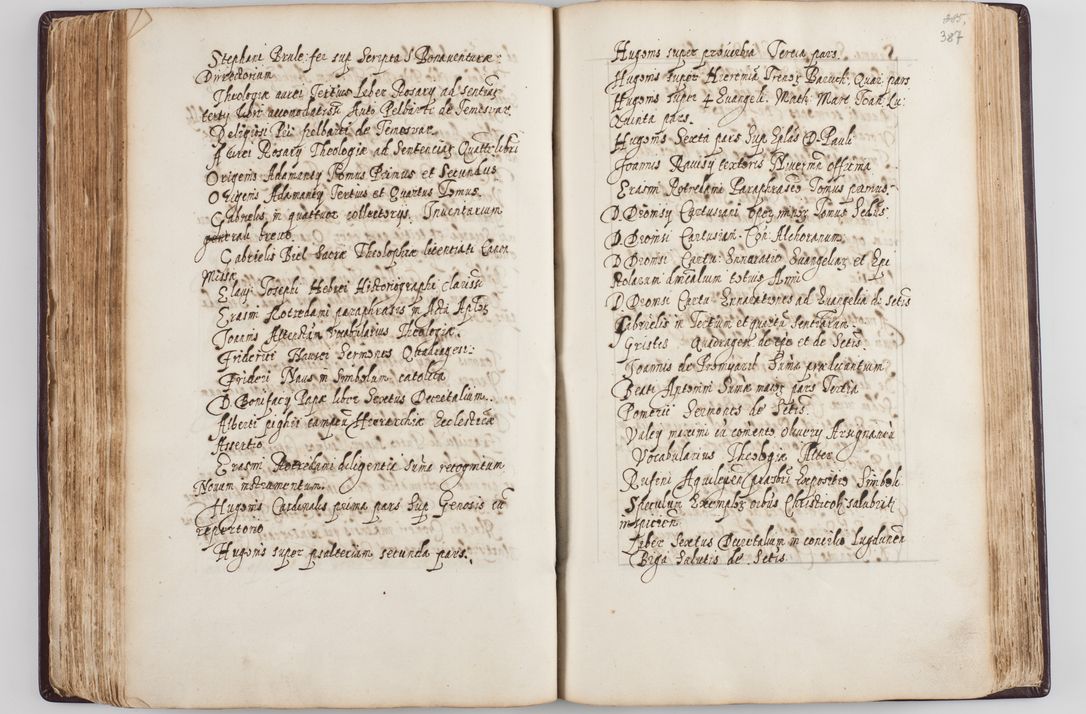 Stephani Brule: fer sup Scripta S Bonaventuræ
Dirrectorium
Theologiæ aurei Tertius Leber Rosary ad senten
terty libri accomodatum Auto Pelbarti de Temesvar
Religiosi Pri Pelbarti de Temesvar
Aurei Rosary Theologiæ ad Sententias Quatti libri
Origenis Adamanty Tomus Primus et Secundus
Origenis Adamanty Tertius et Quartus Tomus
Gabrielis in quattuor collectorys, Inventarium
generali breve
Gabrielis Biel Sacræ Theolophiæ licentiati Canon
Missæ
Flavy Josephi Hebrei Historiographi clarissi
Erasm Rotredami paraphrasis in Acta Aptos
Joannis Altenstain Vocabularius Theologiæ
Friderici Nausei Sermones Quadrages:
Frideri Naus in Simbolum catolica
D. Bonifacy Papæ liber Sextus Decretalium.
Alberti pighii campen Hierarchiæ Ecclesticæ
Assertio
Erasm Rotredami diligentiæ suma recognitum
Novum instrumentum.
Hugonis Cardinalis prima pars Sup Genesis cu
repertorio
Hugonis super psalterium secunda pars.
385,
387
Hugonis super proverbia Tercia pars.
Hugonis super Hieremia Trenos Baruch. Quar pars
Hugonis super 4 Euangeli. Math: Marc Joan Lu:
Quinta pars.
Hugonis Sexta pars Sup Eplas D. Pauli
Joannis Ravisy textoris officina
Erasm Rotredami Paraphrases Tomus primus
D. Dionisy Cartusiani oper minor Tomus Sedus
D. Dionisi Cartusian. Con: Alchoranum
D. Dionisi Cartu: Ennaratio Euangelior et Epi
stolarum dnicalum totius Anni
D. Dionisi Cartu: Ennarationes ad Euangelia di Sctis
Gabrielis in Tertium et quartu Sententiarum.
Gristes Quadragen de tpe et de Sctis.
Joannis de Bromyard Suma prædicantium
Beati Antonini Sumæ maior pars Tertia
Pomerii Sermones de Sctis.
Valery maximi cu comento Oliuery Arsignanen
Vocabularius Theologiæ Alter
Rufini Aquileyen præsbri Expositio Simboli
Speculum Exemplor oibus Christicolis salubriti
inspicien
Liber Sextus Decretalium in concilio Lugdunen
Biga Salutis de Sctis.